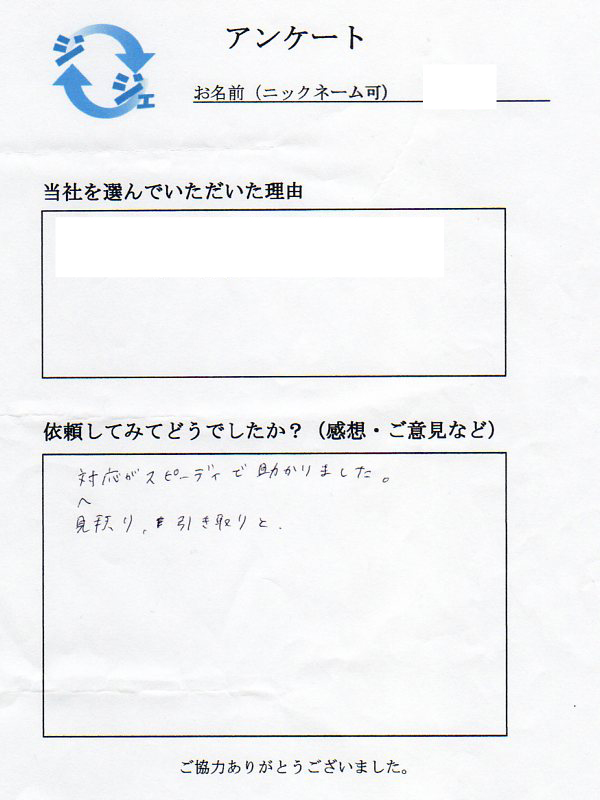 ジジェ
アンケート
お名前（ニックネーム可）
当社を選んでいただいた理由
依頼してみてどうでしたか？（感想・ご意見など）
対応がスピーディで助かりました。
へ
見積り、引き取りと、
ご協力ありがとうございました。